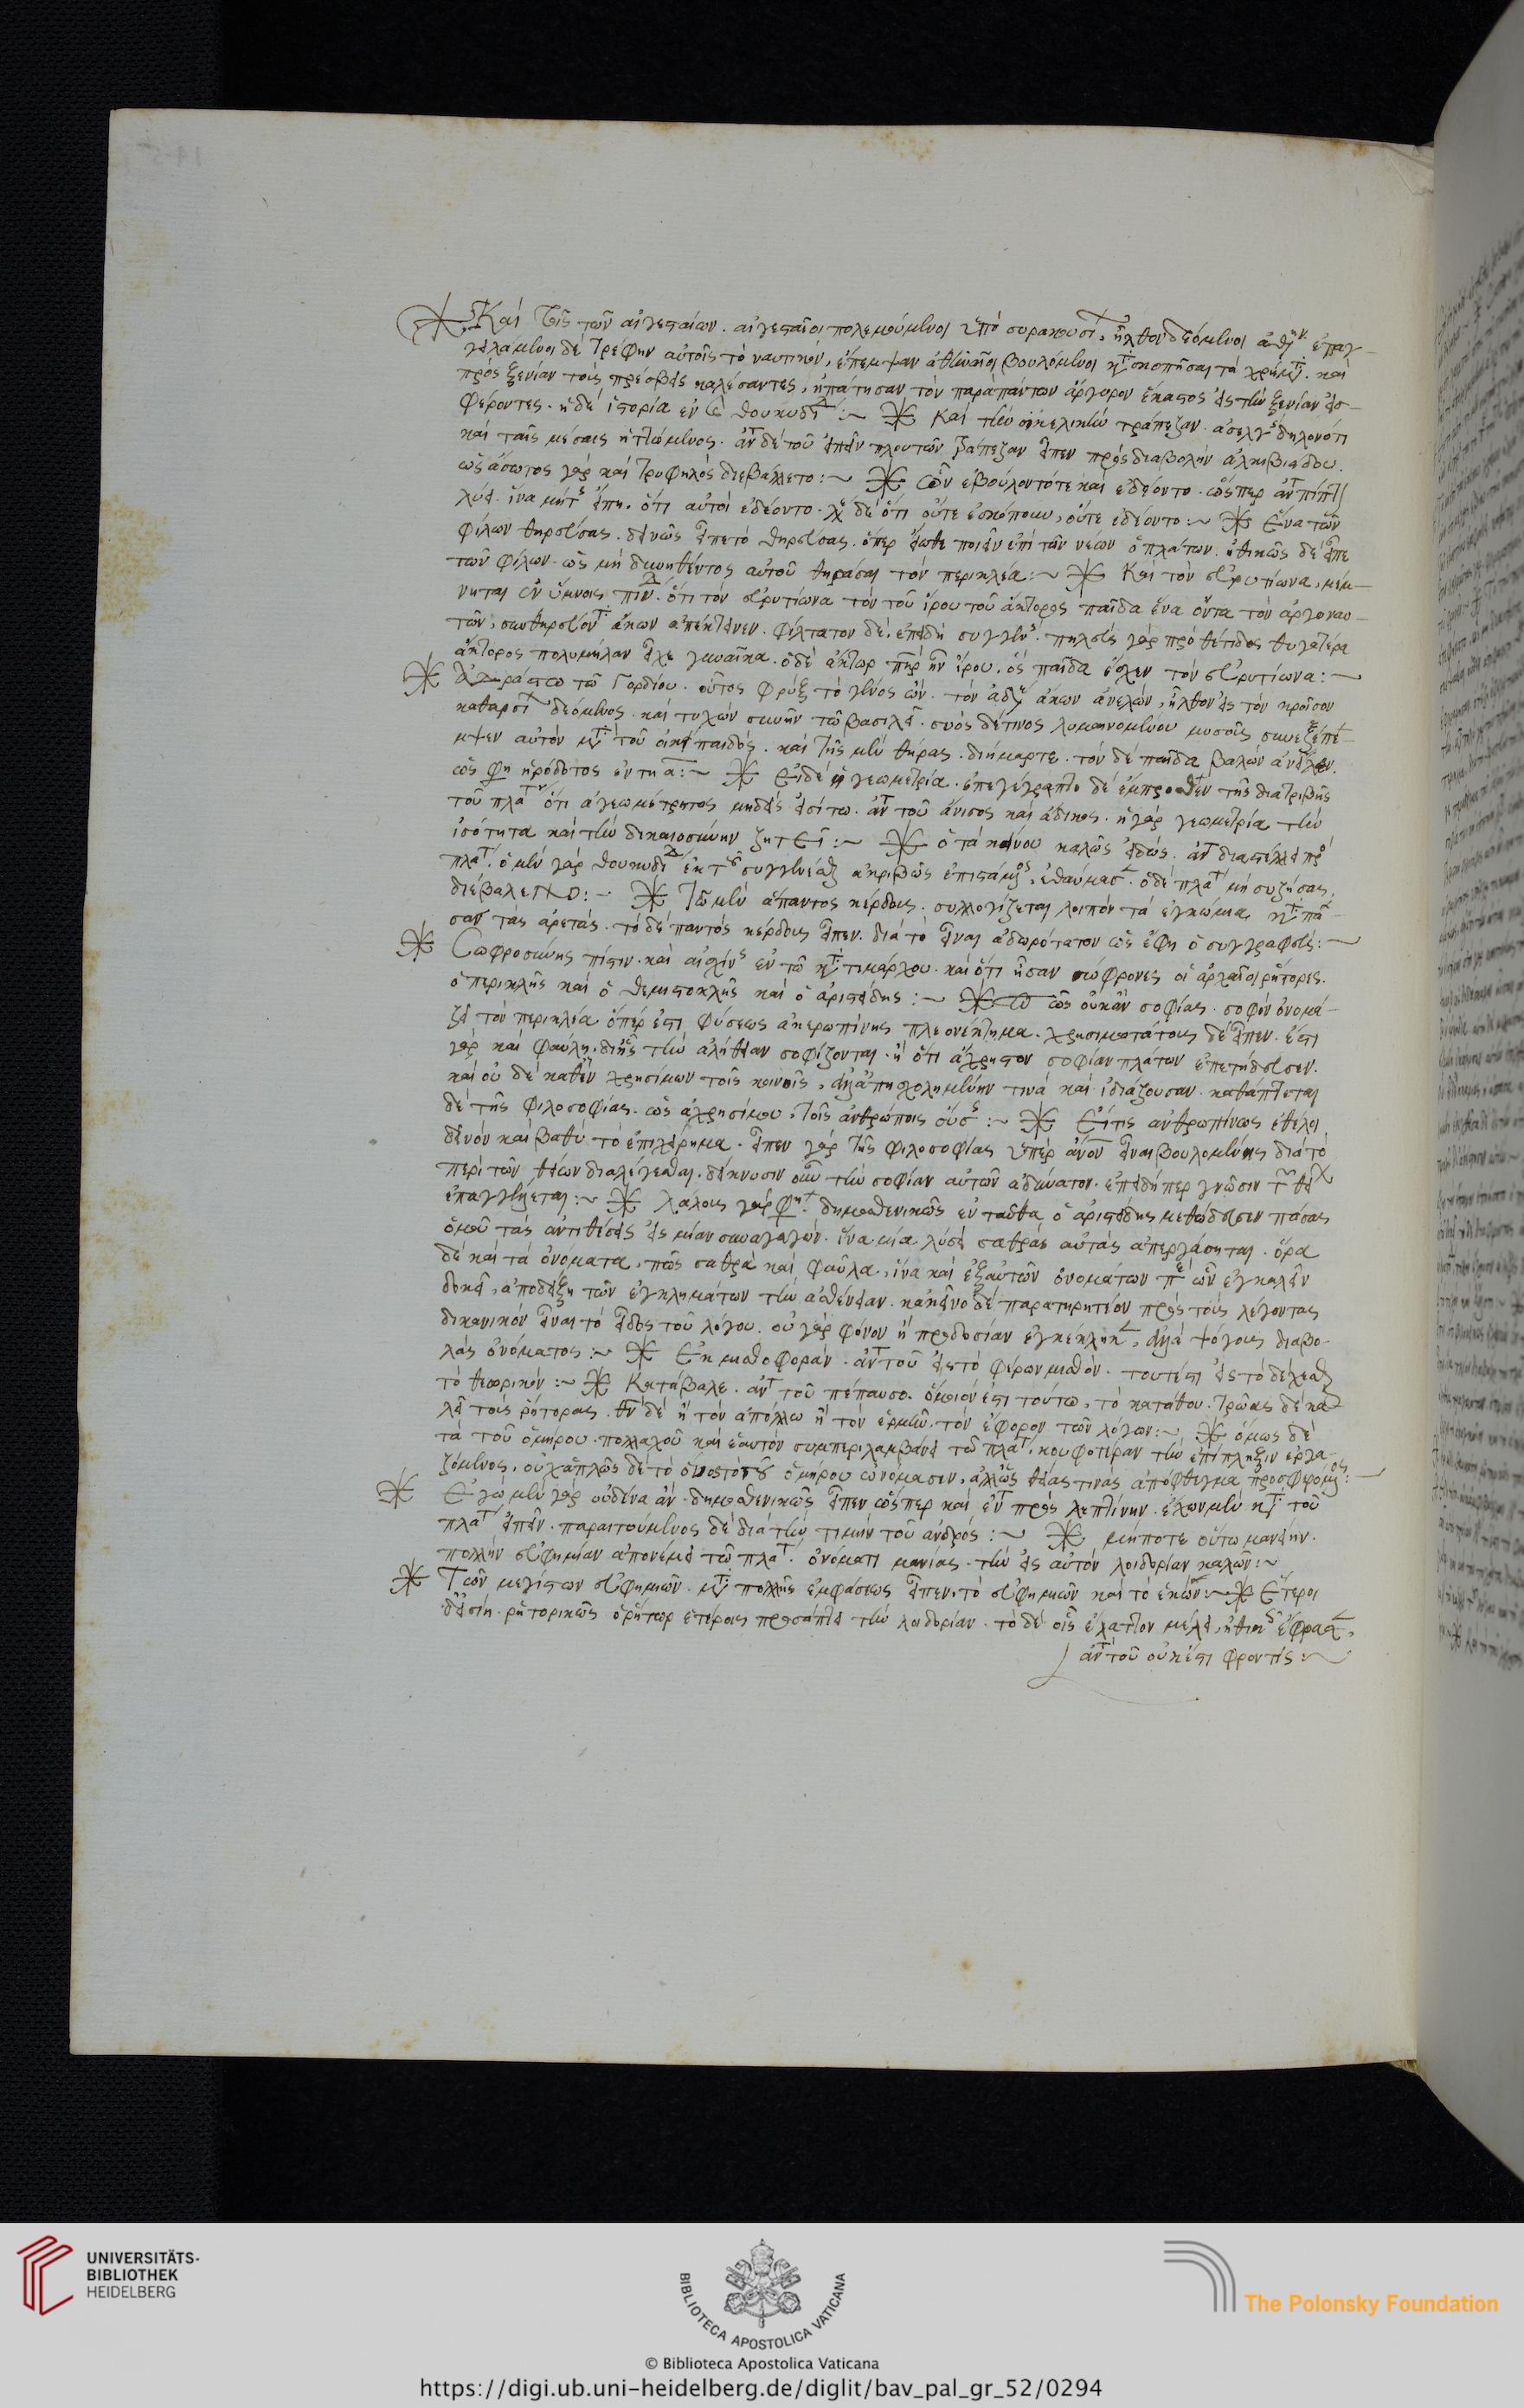 Καὶ τῆς τῶν αἰγεσταίων. αἰγεσταῖοι πολεμούμενοι ὑπὸ συρακουσί, ἦλθον δεόμενοι ἀθην. ἐπαγ-
γειλάμενοι δὲ τρέφειν αὐτοῖς τὸ ναυτικόν, ἔπεμψαν ἀθηναῖοι βουλόμενοι κτ σκοπῆσαι τὰ χρήμτ. καὶ
πρὸς ξενίαν τοὺς πρέσβεις καλέσαντες, ἠπάτησαν τὸν παρὰ πάντων ἄργυρον ἕκαστος εἰς τὴν ξενίαν εἰσ-
φέροντες. ἡ δὲ ἱστορία ἐν θουκυδί :~ Καὶ τὴν σικελικὴν τράπεζαν. ἀσελγ δηλονότι
καὶ ταῖς μέσαις ἡττώμενος. ἀντ δὲ τοῦ εἰπεῖν πλουτῶν τράπεζαν εἶπεν πρὸς διαβολὴν ἀλκιβιάδου.
ὡς ἄσωτος γὰρ καὶ τρυφηλὸς διεβάλλετο :~ ὧν ἐβούλοντό τε καὶ ἐδέοντο. ὥσπερ ἀντπίπτ
λύει. ἵνα μήτις εἴπῃ. ὅτι αὐτοὶ ἐδέοντο. λύει δὲ ὅτι οὔτε ἐσκόπουν, οὔτε ἐδέοντο :~ ἕνα τῶν
φίλων θηρεύσας. δεινῶς εἶπε τὸ θηρεύσας. ὅπερ εἴωθε ποιεῖν ἐπὶ τῶν νέων ὁ πλάτων. ἠθικῶς δὲ εἶπε
τῶν φίλων. ὡς μὴ δυνηθέντος αὐτοῦ θηρᾶσαι τὸν περικλέα :~ Καὶ τὸν εὐρυτίωνα, μέμ-
νηται ἐν ὕμνοις πίν. ὅτι τὸν εὐρυτίωνα τὸν τοῦ ἴρου τοῦ ἄκτορος παῖδα ἕνα ὄντα τῶν ἀργοναυ-
τῶν, συνθηρεύοντ ἄκων ἀπέκτεινεν. φίλτατον δὲ, ἐπειδὴ συγγεν. πηλεὺς γὰρ πρὸ θέτιδος θυγατέρα
ἄκτορος πολυμήλαν εἶχε γυναῖκα. ὁ δὲ ἄκτωρ πηρ ἦν ἴρου. ὃς παῖδα ἔσχεν τὸν εὐρυτίωνα :~
Ἀδράστω τῶ Γορδίου. οὗτος φρὺξ τὸ γένος ὤν. τὸν ἀδελφὸν ἄκων ἀνελών, ἦλθον εἰς τὸν κροῖσον
καθαρσί δεόμενος. καὶ τυχὼν συνῆν τῶ βασιλεῖ. συὸς δέ τινος λυμαινομένου μυσοῖς συνεξέπε-
μψεν αὐτὸν μτ τοῦ οἰκεί παιδός. καὶ τῆς μὲν θήρας. διήμαρτε. τὸν δὲ παῖδα βαλὼν ἀνεῖλεν.
ὥς φη ἡρόδοτος ἐν τῆ α :~ Εἰ δὲ ἡ γεωμετρία. ἐπεγέγραπτο δὲ ἔμπροσθεν τῆς διατριβῆς
τοῦ πλάτ ὅτι ἀγεωμέτρητος μηδεὶς εἰσίτω. ἀντ τοῦ ἄνισος καὶ ἄδικος. ἡ γὰρ γεωμετρία τὴν
ἰσότητα καὶ τὴν δικαιοσύνην ζητεῖ :~ ὁ τὰ κείνου καλῶς εἰδώς. ἀντ διαστέλλει πρὸ
πλάτ. ὁ μὲν γὰρ θουκυδί ἐκ τ συγγενέσθαι ἀκριβῶς ἐπιστάμενος, ἐθαύμασ. ὁ δὲ πλάτ μὴ συζήσας,
διέβαλεν :~ Τῶ μὲν ἅπαντος κέρδους. συλλογίζεται λοιπὸν τὰ ἐγκώμια κτ πά-
σας τὰς ἀρετάς. τὸ δὲ παντὸς κέρδους εἶπεν. διὰ τὸ εἶναι ἀδωρότατον ὡς ἔφη ὁ συγγραφεύς :~
Σωφροσύνης πίστιν. καὶ αἰσχίνς ἐν τῶ κτ τιμάρχου. καὶ ὅτι ἦσαν σώφρονες οἱ ἀρχαῖοι ῥήτορες.
ὁ περικλῆς καὶ ὁ θεμιστοκλῆς καὶ ὁ ἀριστείδης :~ ὡς οὐκ ἂν σοφίας. σοφὸν ὀνομά-
ζει τὸν περικλέα ὅπέρ ἐστι φύσεως ἀνθρωπίνης πλεονέκτημα. χρησιμωτάτους δὲ εἶπεν. ἔστι
γὰρ καὶ φαύλη. δι' ἧς τὴν ἀλήθειαν σοφίζονται. ἢ ὅτι ἄχρηστον σοφίαν πλάτων ἐπετήδευσεν.
καὶ οὐδὲ καθὲν χρησίμων τοῖς κοινοῖς, ἀλλ' ἀπησχολημένην τινὰ καὶ ἰδιάζουσαν. καθάπτεται
δὲ τῆς φιλοσοφίας. ὡς ἀχρησίμου, τοῖς ἀνθρώποις οὔσης :~ Εἴ τις ἀνθρωπίνως ἐθέλοι
δεινὸν καὶ βαθὺ τὸ ἐπιχείρημα. εἶπεν γὰρ τῆς φιλοσοφίας ὑπὲρ ἄνον εἶναι βουλομένης διὰ τὸ
περὶ τῶν θείων διαλέγεσθαι. δείκνυσιν οὖν τὴν σοφίαν αὐτῶν ἀδύνατον. ἐπειδήπερ γνῶσιν τ θεί
ἐπαγγέλλεται :~ Λάλους γὰρ φη. δημοσθενικῶς ἐνταῦθα ὁ ἀριστείδης μεθώδευσεν πάσας
ὁμοῦ τὰς ἀντιθέσεις εἰς μίαν συναγαγών. ἵνα μία λύσει σαθρὰς αὐτὰς ἀπεργάσηται. ὅρα
δὲ καὶ τὰ ὀνόματα, πῶς σαθρὰ καὶ φαῦλα, ἵνα καὶ ἐξ αὐτῶν ὀνομάτων ὧν ἐγκαλεῖν
δοκεῖ, ἀποδείξη τῶν ἐγκλημάτων τὴν ἀσθένειαν. κἀκεῖνο δὲ παρατηρητέον πρὸς τοὺς λέγοντας
δικανικὸν εἶναι τὸ εἶδος τοῦ λόγου. οὐ γὰρ φόνον ἢ προδοσίαν ἐγκέκληκ, ἀλλὰ ψόγους διαβο-
λὰς ὀνόματος :~ Ἐκ μισθοφορὰν. ἀντ τοῦ εἰς τὸ φέρων μισθόν. τουτέστι εἰς τὸ δέχεσθαι
τὸ θεωρικόν :~ Κατάβαλε. ἀντ τοῦ πέπαυσο. ὅμοιόν ἐστι τούτω, τὸ κατάθου. τρῶας δὲ κα-
λεῖ τοὺς ῥήτορας. θν δὲ ἢ τὸν ἀπόλλω ἢ τὸν ἑρμῆν. τὸν ἔφορον τῶν λόγων :~ ὅμως δὲ
τὰ τοῦ ὁμήρου. πολλαχοῦ καὶ ἑαυτὸν συμπεριλαμβάνει τῶ πλάτ, κουφοτέραν τὴν ἐπίπληξιν ἐργα-
ζόμενος. οὐχ ἁπλῶς δὲ τὸ ὁμήρου ὠνόμασεν, ἀλλ' ὡς θείας τινας ἀπόφθεγμα προσφερόμενος :~
Ἐγὼ μὲν γὰρ οὐδένα ἂν. δημοσθενικῶς εἶπεν ὥσπερ καὶ ἐν πρὸς λεπτίνην. ἔχων μὲν κτ τοῦ
πλάτ εἰπεῖν. παραιτούμενος δὲ διὰ τὴν τιμὴν τοῦ ἀνδρός :~ μήποτε οὕτω μανείην.
πολλὴν εὐφημίαν ἀπονέμει τῶ πλάτ. ὀνόματι μανίας. τὴν εἰς αὐτὸν λοιδορίαν καλῶν :~
Τῶν μεγίστων εὐφημιῶν. μτ πολλῆς ἐμφάσεως εἶπεν. τὸ εὐφημιῶν καὶ τὸ ἑκών :~ Ἕτεροι
δ' εἰσὶν. ῥητορικῶς ὁ ῥήτωρ ἑτέροις προσάπτει τὴν λοιδορίαν. τὸ δὲ οἷς ἔλαττον μέλει, ἠθικῶς ἔφρασ.
ἀντ τοῦ οὐκ ἔστι φροντίς :~
UNIVERSITÄTS-
BIBLIOTHEK
HEIDELBERG
BIBLIOTECA APOSTOLICA VATICANA
The Polonsky Foundation
© Biblioteca Apostolica Vaticana
https://digi.ub.uni-heidelberg.de/diglit/bav_pal_gr_52/0294